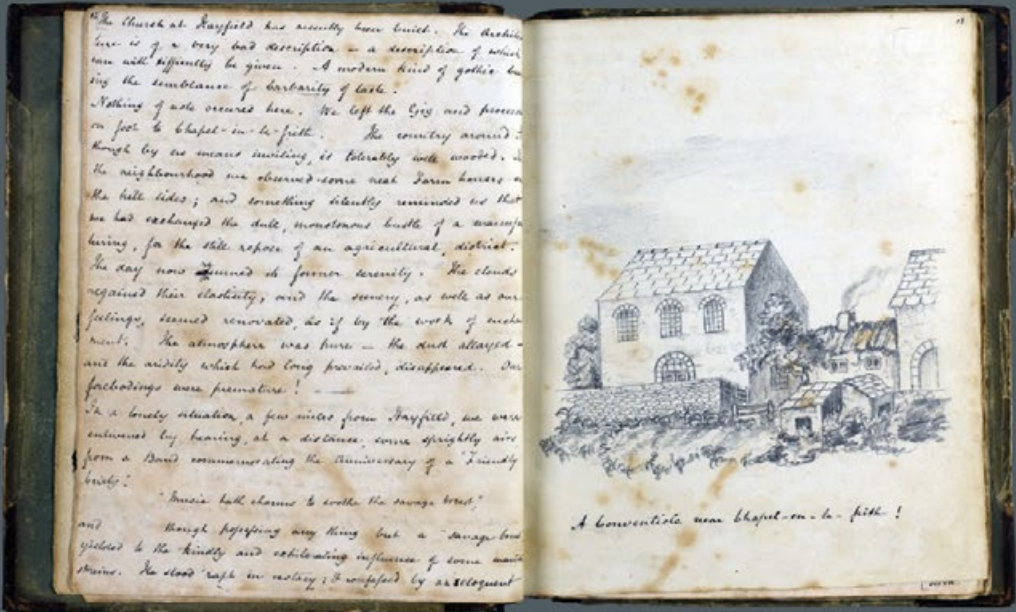 The Church at Hayfield has recently been built. The Architec
ture is of a very bad description — a description of which
can with difficulty be given. A modern kind of gothic
ing the semblance of barbarity of taste.
Nothing of note occurs here. We left the Gig and
on foot to Chapel-en-le-frith. The country around
though by no means inviting, is tolerably well wooded.
the neighbourhood we observed some neat Farm houses
the hill sides; and something silently reminded us that
we had exchanged the dull, monotonous bustle of a manufac
turing, for the still repose of an agricultural district.
The day now its former serenity. The clouds
regained their elasticity, and the scenery, as well as our
feelings, seemed renovated, as if by the work of enchant
ment. The atmosphere was pure — the dust allayed —
and the aridity which had long prevailed, disappeared. Our
forebodings were premature!
In a lonely situation, a few miles from Hayfield, we were
enlivened by hearing, at a distance, some sprightly airs
from a Band commemorating the Anniversary of a "Friendly
"Music hath charms to soothe the savage breast,"
and though possessing any thing but a "savage
yielded to the kindly and exhilarating influence of some
strains. He stood rapt in ecstacy; I confessed by an eloquent
A Conventicle near Chapel-en-le-frith!